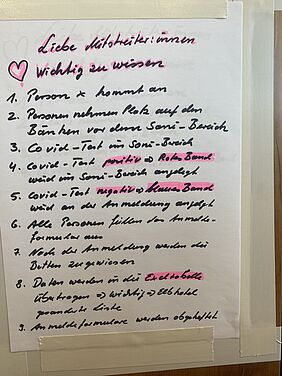 Liebe Mitstreiter:innen
Wichtig zu wissen
1. Person x kommt an
2. Personen nehmen Platz auf den
Bänken vor dem Sani-Bereich
3. Covid-Test im Sani-Bereich
4. Covid-Test positiv => Rotes Band
wird im Sani-Bereich angelegt
5. Covid-Test negativ => blaues Band
wird an der Anmeldung angelegt
6. Alle Personen füllen das Anmelde-
formular aus
7. Nach der Anmeldung werden die
Betten zugewiesen
8. Daten werden in die Exceltabelle
übertragen => wichtig => Elbhotel
Liste
9. Anmeldeformulare werden abgeheftet